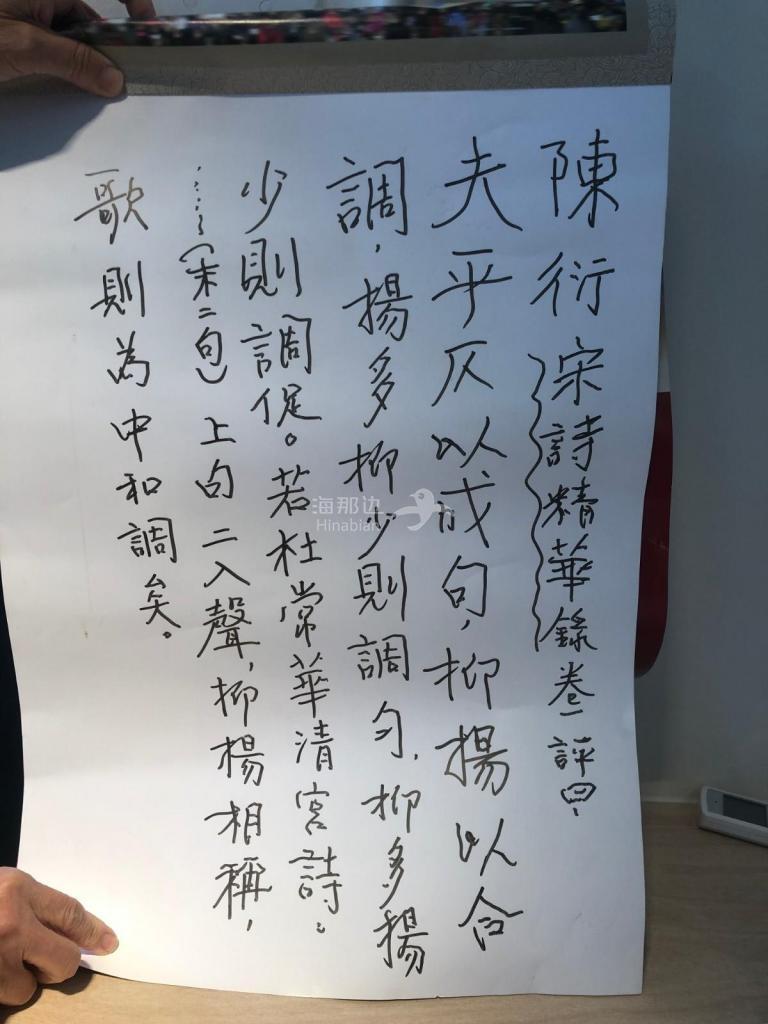 陳衍宋詩精華錄卷一評曰、
夫平仄以成句,抑揚以合
調,揚多抑少則調勻,抑多揚
少則調促。若杜常華清宮詩。
……(末二句)上句二入聲,抑揚相稱,
歌則為中和調矣。
海那边
Hinabian